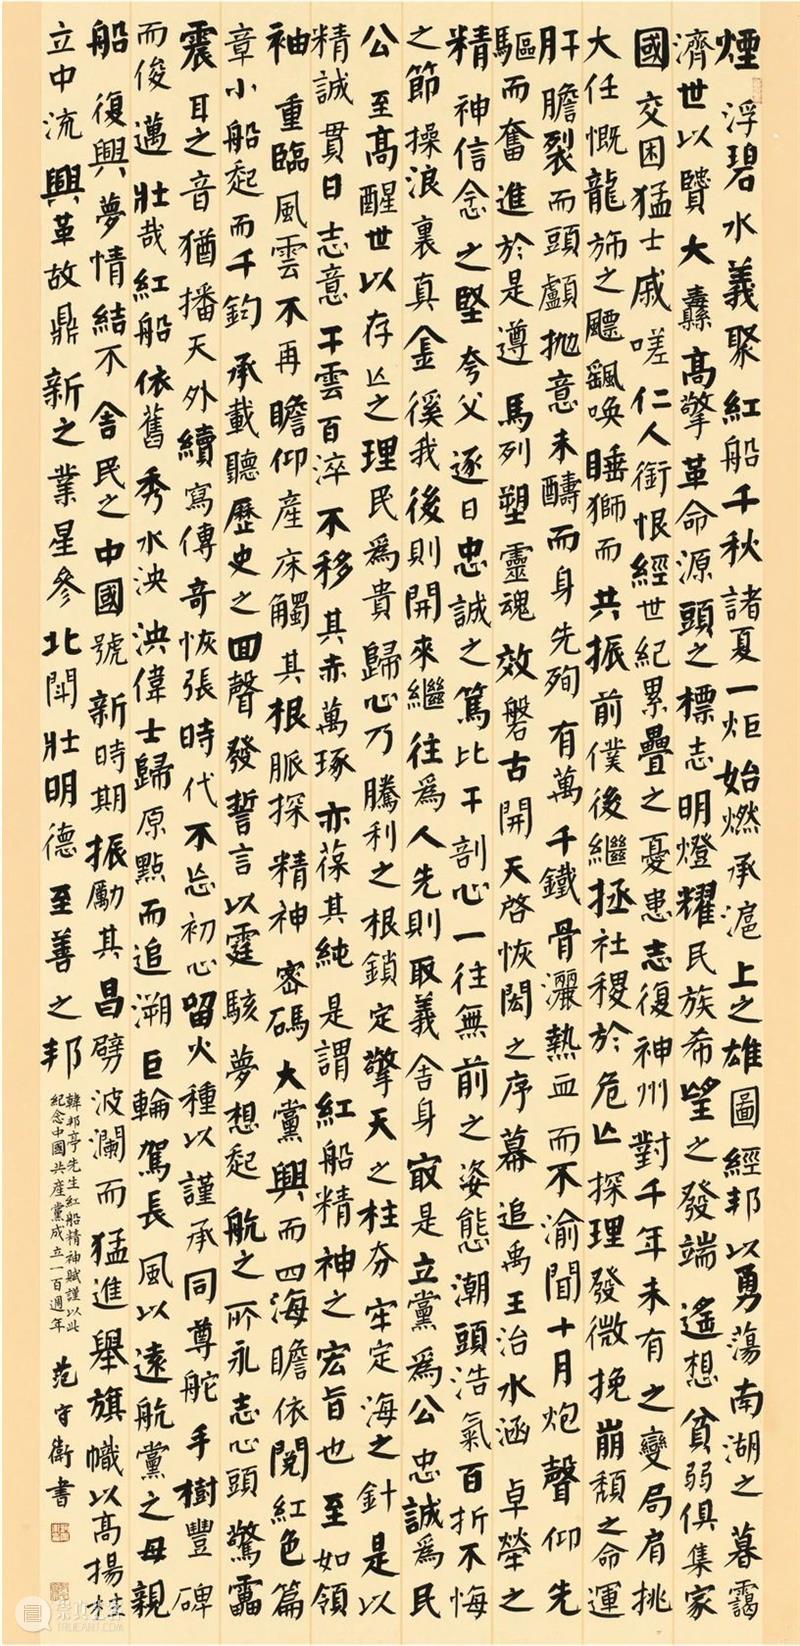 煙浮碧水義聚紅船千秋諸夏一炬始燃承滬上之雄圖經邦以勇蕩南湖之暮靄
濟世以贒大纛高擎革命源頭之標志明燈耀民族希望之發端遙想貧弱俱集家
國交困猛士戚嗟仁人銜恨經世紀累疊之憂患志復神州對千年未有之變局肩挑
大任慨龍旆之飄颻喚睡獅而共振前僕後繼拯社稷於危亾探理發微挽崩頹之命運
肝膽裂而頭顱拋意未酬而身先殉有萬千鐵骨灑熱血而不渝聞十月炮聲仰先
驅而奮進於是遵馬列塑靈魂效盤古開天啓恢閎之序幕追禹王治水涵卓犖之
精神信念之堅夸父逐日忠誠之篤比干剖心一往無前之姿態潮頭浩氣百折不悔
之節操浪裏真金徯我後則開來繼往為人先則取義舍身寂是立黨為公忠誠為民
公至高醒世以存亾之理民為貴歸心乃騰利之根鎖定擎天之柱夯牢定海之針是以
精誠貫日志意干雲百淬不移其赤萬琢亦葆其純是謂紅船精神之宏旨也至如領
袖重臨風雲不再瞻仰產床觸其根脈探精神密碼大黨興而四海瞻依閱紅色篇
章小船起而千鈞承載聽歷史之回聲發誓言以霆駭夢想起航之所永志心頭驚靁
震耳之音猶播天外續寫傳奇恢張時代不忘初心留火種以謹承同尊舵手樹豐碑
而俊邁壯哉紅船依舊秀水泱泱偉士歸原點而追溯巨輪駕長風以遠航黨之母親
船復興夢情結不舍民之中國號新時期振勵其昌劈波瀾而猛進舉旗幟以高揚柱
立中流興革故鼎新之業星參北閗壯明德至善之邦
韓邦亭先生紅船精神賦謹以此
紀念中國共產黨成立一百週年
范守衛書
崇真艺客
TRUEART.COM